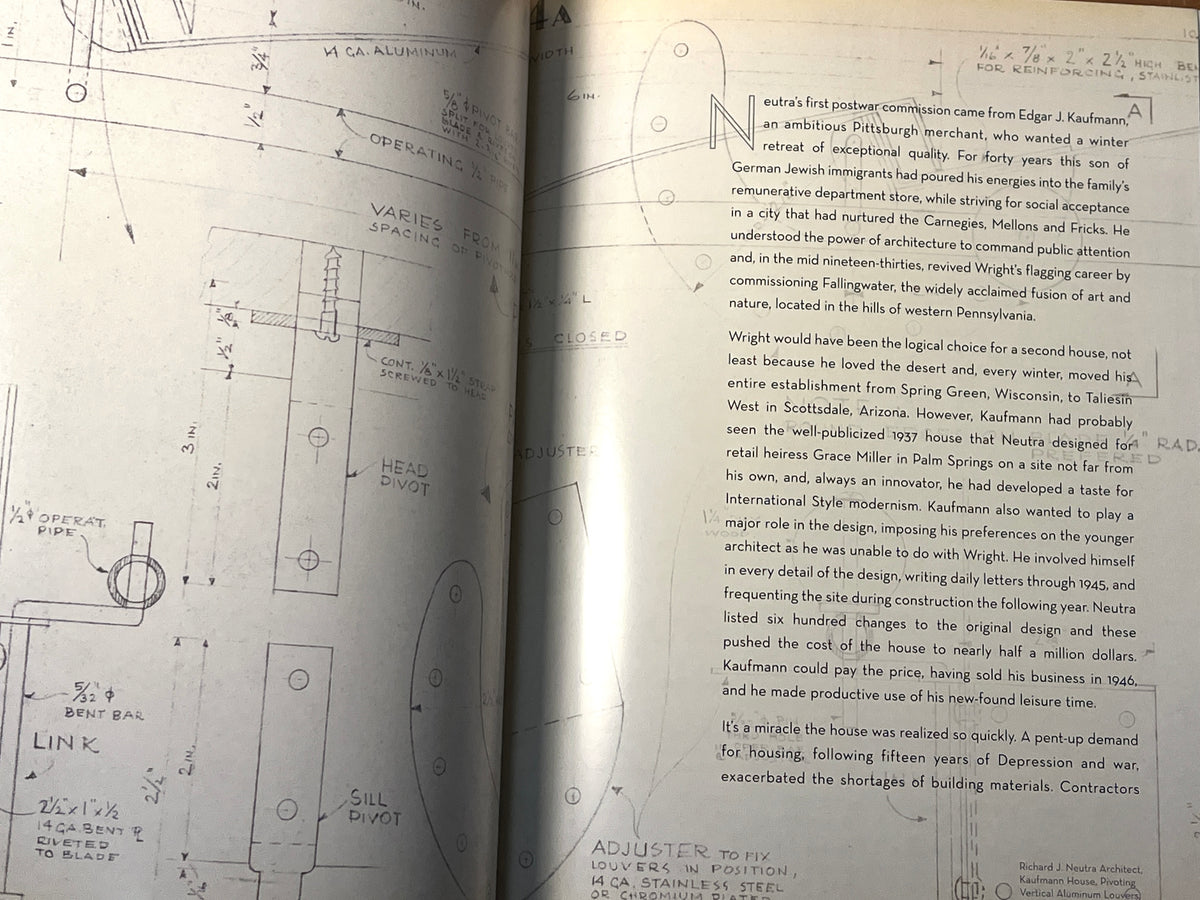 IN.
1 IN.
3/4"
1/2"
14 GA. ALUMINUM
5/8" ϕ PIVOT
SPLIT FOR
BLADE &
WITH
OPERATING 1/2" PIPE
VARIES FROM
SPACING OF PIVOT
1/8"
1/2"
CONT. 1/8" x 1 1/2" STRAP
SCREWED TO HEAD
3 IN.
2 IN.
HEAD
PIVOT
1/2" ϕ OPERAT.
PIPE
5/32" ϕ
BENT BAR
LINK
2 1/2" x 1" x 1/2
14 GA. BENT PL
RIVETED
TO BLADE
2 1/2"
2 IN.
SILL
PIVOT
4A
WIDTH
6 IN.
1 1/2 x 1/4" L
CLOSED
ADJUSTER
1/16" x 7/8" x 2" x 2 1/2" HIGH
FOR REINFORCING, STAINLESS
A
Neutra's first postwar commission came from Edgar J. Kaufmann,
an ambitious Pittsburgh merchant, who wanted a winter
retreat of exceptional quality. For forty years this son of
German Jewish immigrants had poured his energies into the family's
remunerative department store, while striving for social acceptance
in a city that had nurtured the Carnegies, Mellons and Fricks. He
understood the power of architecture to command public attention
and, in the mid nineteen-thirties, revived Wright's flagging career by
commissioning Fallingwater, the widely acclaimed fusion of art and
nature, located in the hills of western Pennsylvania.
Wright would have been the logical choice for a second house, not
least because he loved the desert and, every winter, moved his
entire establishment from Spring Green, Wisconsin, to Taliesin
West in Scottsdale, Arizona. However, Kaufmann had probably
seen the well-publicized 1937 house that Neutra designed for
retail heiress Grace Miller in Palm Springs on a site not far from
his own, and, always an innovator, he had developed a taste for
International Style modernism. Kaufmann also wanted to play a
major role in the design, imposing his preferences on the younger
architect as he was unable to do with Wright. He involved himself
in every detail of the design, writing daily letters through 1945, and
frequenting the site during construction the following year. Neutra
listed six hundred changes to the original design and these
pushed the cost of the house to nearly half a million dollars.
Kaufmann could pay the price, having sold his business in 1946,
and he made productive use of his new-found leisure time.
It's a miracle the house was realized so quickly. A pent-up demand
for housing, following fifteen years of Depression and war,
exacerbated the shortages of building materials. Contractors
A
1/4" RAD.
PREFERRED
ADJUSTER TO FIX
LOUVERS IN POSITION,
14 GA. STAINLESS STEEL
OR CHROMIUM PLATED
Richard J. Neutra Architect,
Kaufmann House, Pivoting
Vertical Aluminum Louvers